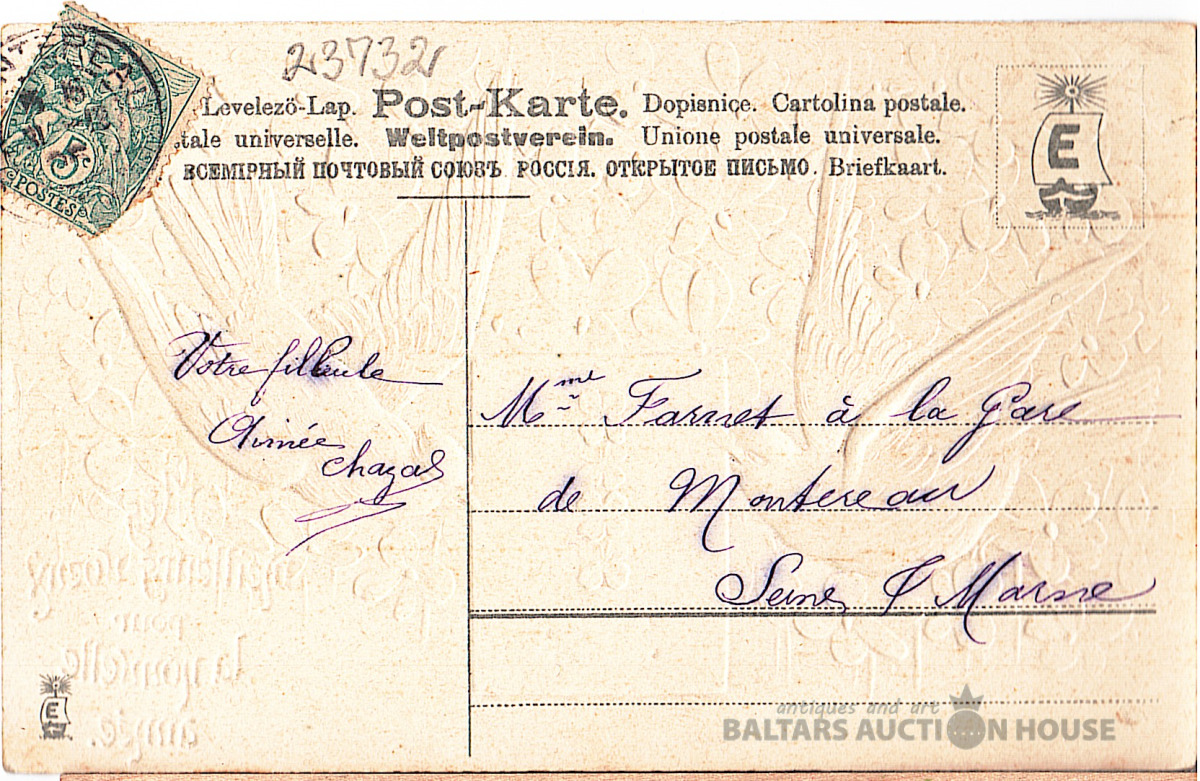 23732
Levelező-Lap. Post-Karte. Dopisnice. Cartolina postale.
tale universelle. Weltpostverein. Unione postale universale.
ВСЕМІРНЫЙ ПОЧТОВЫЙ СОЮЗЪ РОССІЯ. ОТКРЫТОЕ ПИСЬМО. Briefkaart.
E
5c
POSTES
Votre filleule
Aimée
Chazal
Mme Farnet à la Gare
de Montereau
Seine & Marne
meilleurs voeux
pour
la nouvelle
année.
E
antiques and art
BALTARS AUCTION HOUSE